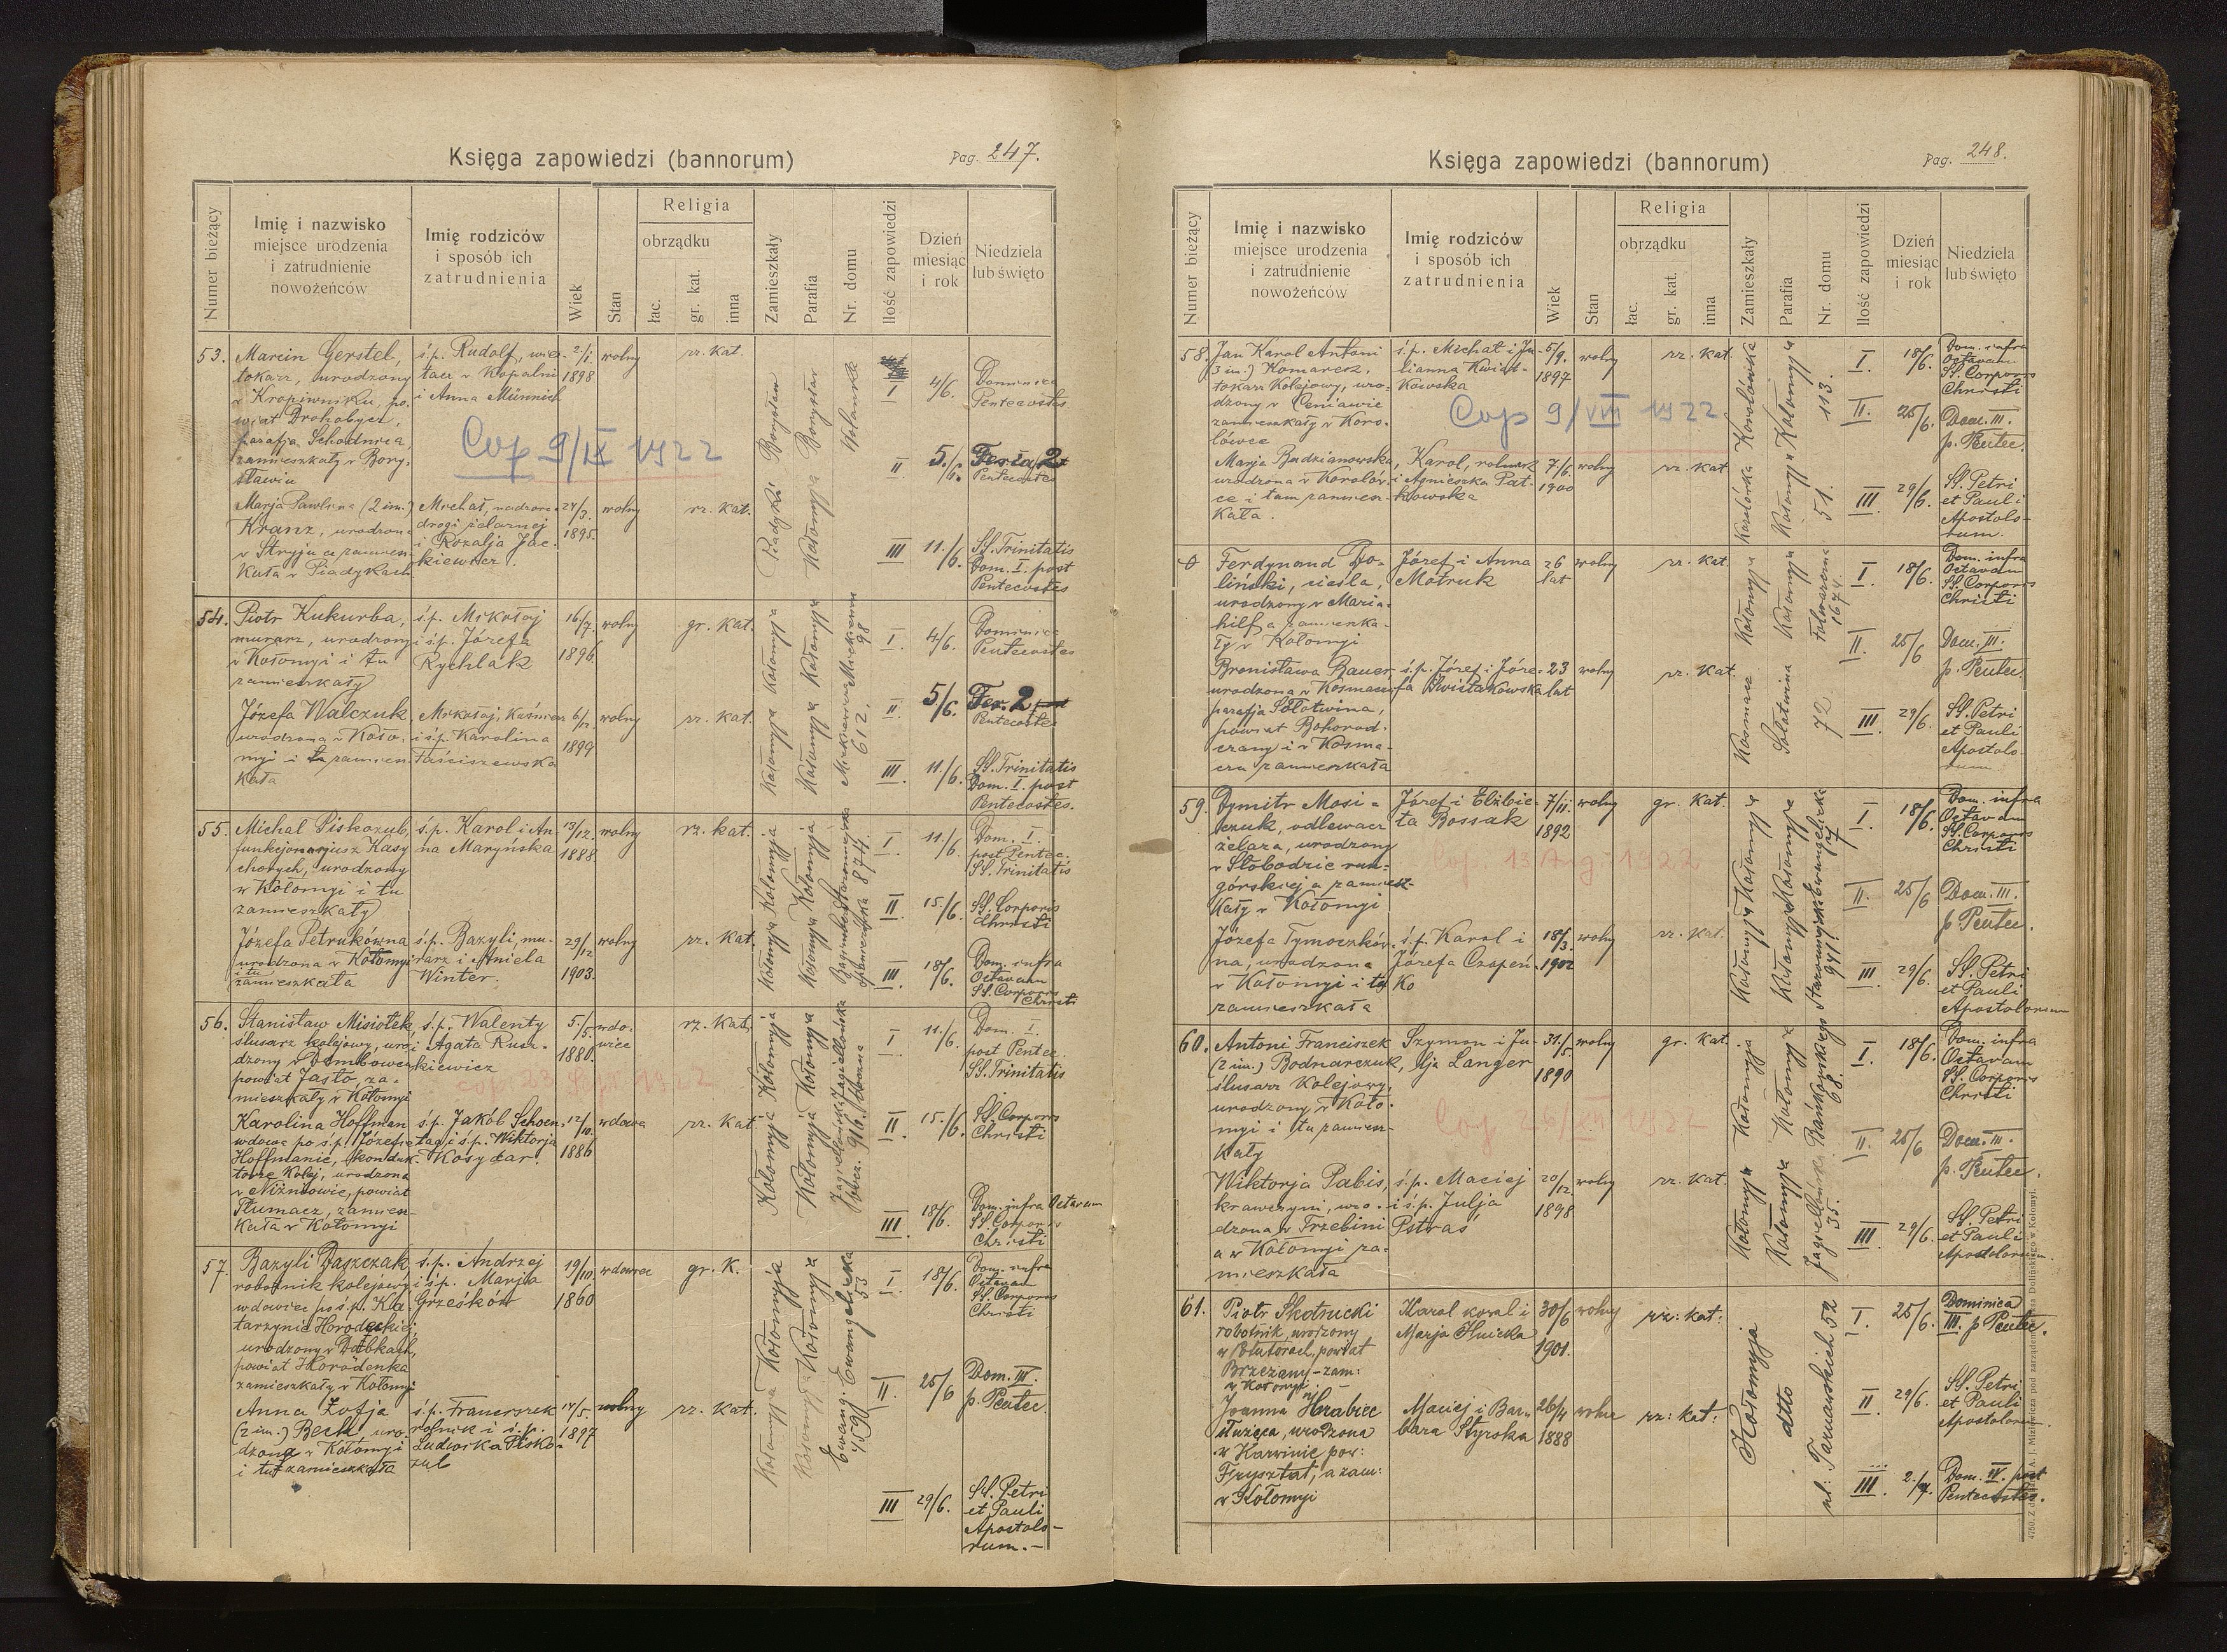 Księga zapowiedzi (bannorum)
Pag. 247.
Numer bieżący
Imię i nazwisko
miejsce urodzenia
i zatrudnienie
nowożeńców
Imię rodziców
i sposób ich
zatrudnienia
Wiek
Stan
Religia
obrządku
łac.
gr. kat.
inna
Zamieszkały
Parafia
Nr. domu
Ilość zapowiedzi
Dzień
miesiąc
i rok
Niedziela
lub święto
53.
Marcin Gerstel,
tokarz, urodzony
w Kropiwniku, po-
wiat Drohobycz,
parafja Schodnica,
zamieszkały w Bory-
sławiu
ś.p. Rudolf, wier-
tacz w Kopalni
i Anna Münnich
2/1.
1898
wolny
rz. kat.
Borysław
Borysław
Wolanka
Cop 9/IX 1922
Marja Pawlina (2 im.)
Kranz, urodzona
w Stryju a zamiesz-
kała w Piadykach
Michał, nadzorca
drogi żelaznej
i Rozalja Jac-
kiewicz.
24/3.
1895.
wolny
rz. kat.
Piadyki
Kołomyja
I
4/6.
Dominica
Pentecostes
II
5./6.
Feria 2
Pentecostes
III
11./6.
SS. Trinitatis
Dom. I. post
Pentecostes
54.
Piotr Kukurba,
murarz, urodzony
w Kołomyi i tu
zamieszkały
ś.p. Mikołaj
i ś.p. Józefa
Rychlak
16/7.
1896.
wolny
gr. kat.
Kołomyja
Kołomyja
Mickiewicza
98
Józefa Walczuk
urodzona w Koło-
myi i tu zamiesz-
kała
Mikołaj, Kuśnierz
i ś.p. Karolina
Faściszewska
6/2.
1899
wolny
rz. kat.
Kołomyja
Kołomyja
Mickiewicza
612.
I.
4/6.
Dominica
Pentecostes
II.
5/6.
Fer. 2
Pentecostes
III.
11./6.
SS. Trinitatis
Dom. I. post
Pentecostes.
55.
Michał Piskozub,
funkcjonarjusz Kasy
chorych, urodzony
w Kołomyi i tu
zamieszkały
ś.p. Karol i An-
na Maryńska
13/12.
1888
wolny
rz. kat.
Kołomyja
Kołomyja
874.
Józefa Petrukówna
urodzona w Kołomyi
i tu
zamieszkała
ś.p. Bazyli, mu-
rarz i Aniela
Winter.
29/12
1903.
wolny
rz. kat.
Kołomyja
Kołomyja
I.
11/6.
Dom. I.
post Pentec.
SS. Trinitatis
II.
15./6.
SS. Corporis
Christi
III.
18/6.
Dom. infra
Octavam
SS. Corporis
Christi
56.
Stanisław Misiołek,
ślusarz kolejowy, uro-
dzony w Dembowcu
powiat Jasło, za-
mieszkały w Kołomyi
ś.p. Walenty
i Agata Rusz-
kiewicz
5./5.
1880.
wdo-
wiec
rz. kat.
Kołomyja
Kołomyja
Jagiellońska
Karolina Hoffman
wdowa po ś.p. Józefie
Hoffmanie, konduk-
torze Kolej, urodzona
w Niżniowie, powiat
Tłumacz, zamiesz-
kała w Kołomyi
ś.p. Jakób Schoen-
tag i ś.p. Wiktorja
Kosydar.
12/10.
1886
wdowa
rz. kat.
Kołomyja
Kołomyja
Jagiellońska
916.
I.
11./6.
Dom. I.
post Pentec.
SS. Trinitatis
II.
15./6.
SS. Corporis
Christi
III.
18/6.
Dom. infra Octavam
SS. Corporis
Christi
57.
Bazyli Daszczak,
robotnik kolejowy,
wdowiec po ś.p. Ka-
tarzynie Horodeckiej
urodzony w
powiat Horodenka
zamieszkały w Kołomyi
ś.p. Andrzej
i ś.p. Marja
Grześków
19/10.
1860
wdowiec
gr. k.
Kołomyja
Kołomyja
Ewangelicka
53
Anna Zofja
(2 im.) Bech, uro-
dzona w Kołomyi
i tu zamieszkała
ś.p. Franciszek
rolnik i ś.p.
Ludwika Pisko-
zub
14/5.
1897
wolny
rz. kat.
Kołomyja
Kołomyja
Ewang.
I.
18/6.
Dom. infra
Octavam
SS. Corporis
Christi
II.
25/6
Dom. III.
p. Pentec.
III
29/6.
SS. Petri
et Pauli
Apostolo-
rum.-
Księga zapowiedzi (bannorum)
Pag. 248.
Numer bieżący
Imię i nazwisko
miejsce urodzenia
i zatrudnienie
nowożeńców
Imię rodziców
i sposób ich
zatrudnienia
Wiek
Stan
Religia
obrządku
łac.
gr. kat.
inna
Zamieszkały
Parafia
Nr. domu
Ilość zapowiedzi
Dzień
miesiąc
i rok
Niedziela
lub święto
58.
Jan Karol Antoni
(3 im.) Komarez,
tokarz Kolejowy, uro-
dzony w Ceniawie
zamieszkały w Koro-
lówce
ś.p. Michał i Ju-
lianna Kwiat-
kowska
5/9.
1897
wolny
rz. kat.
Korolówka
Kołomyja
113.
Cop 9/VII 1922
Marja Budzianowska,
urodzona w Korolów-
ce i tam zamiesz-
kała.
Karol, rolnik
i Agnieszka Pat-
kowska
7/6.
1900
wolny
rz. kat.
Korolówka
Kołomyja
51.
I.
18/6.
Dom. infra
Octavam
SS. Corporis
Christi
II.
25/6.
Dom. III.
p. Pentec.
III.
29/6.
SS. Petri
et Pauli
Apostolo-
rum.
Ferdynand Do-
liński, cieśla,
urodzony w Maria-
hilf a zamieszka-
ły w Kołomyi
Józef i Anna
Motruk
26
lat
wolny
rz. kat.
Kołomyja
Kołomyja
Bronisława Bauer,
urodzona w Kosmaczu
parafja Sołotwina,
powiat Bohorod-
czany i w Kosma-
czu zamieszkała
ś.p. Józef i Józe-
fa Świstakowska
23
lat
wolny
rz. kat.
Kosmacz
Sołotwina
72
I.
18/6.
Dom. infra
Octavam
SS. Corporis
Christi
II.
25/6
Dom. III.
p. Pentec.
III.
29/6.
SS. Petri
et Pauli
Apostolo-
rum.
59.
Dymitr Mosi-
czuk, odlewacz
żelaza, urodzony
w Słobodzie run-
górskiej a zamiesz-
kały w Kołomyi
Józef i Elżbie-
ta Bossak
7/11.
1892
wolny
gr. kat.
Kołomyja
Kołomyja
Ewangelicka
7
Cop. 13 Aug. 1922
Józefa Tymoczków-
na, urodzona
w Kołomyi i tu
zamieszkała
ś.p. Karol i
Józefa Czopeń-
ko
18/3.
1902
wolny
rz. kat.
Kołomyja
Kołomyja
941.
I.
18/6.
Dom. infra
Octavam
SS. Corporis
Christi
II.
25/6
Dom. III.
p Pentec.
III
29/6.
SS. Petri
et Pauli
Apostolorum
60.
Antoni Franciszek
(2 im.) Bodnarczuk,
ślusarz Kolejowy,
urodzony w Koło-
myi i tu zamiesz-
kały
Szymon i Ju-
lja Langer
31/5
1890
wolny
gr. kat.
Kołomyja
Kołomyja
68.
Wiktorja Pabis,
krawczyni, uro-
dzona w Trzebini
a w Kołomyi za-
mieszkała
ś.p. Maciej
i ś.p. Julja
Pstraś
20/12.
1898
wolny
rz. kat.
Kołomyja
Kołomyja
Jagiellońska
35.
I.
18/6.
Dom. infra
Octavam
SS. Corporis
Christi
II.
25/6
Dom. III.
p. Pentec.
III.
29/6.
SS. Petri
et Pauli
Apostolorum.
61.
Piotr Skotnicki
robotnik, urodzony
w Potutorach, powiat
Brzeżany - zam:
w Kołomyi -
Karol kowal i
Marja
30/6
1901.
wolny
rz: kat:
Joanna Hrabiec
służąca, urodzona
w Karwinie pow:
Frysztat, a zam:
w Kołomyi
Maciej i Bar-
bara Styrska
26/4
1888
wolna
rz: kat:
Kołomyja
dtto
ul: Tarnawskich 52
I.
25/6.
Dominica
III. p Pentec.
II
29/6.
SS. Petri
et Pauli
Apostolorum.
III.
2./7.
Dom. IV. post
Pentecostes.